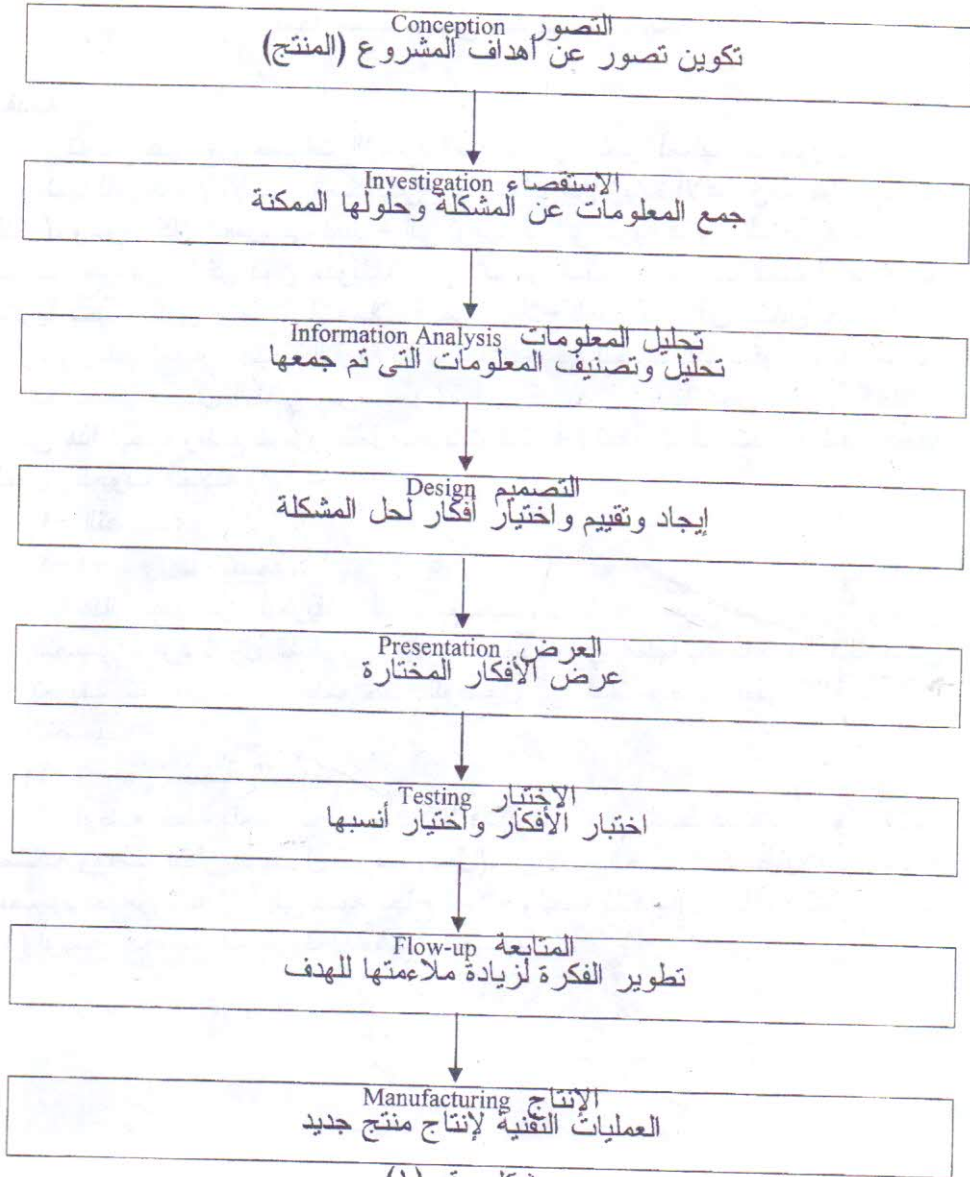 التصور Conception
تكوين تصور عن أهداف المشروع (المنتج)
الاستقصاء Investigation
جمع المعلومات عن المشكلة وحلولها الممكنة
تحليل المعلومات Information Analysis
تحليل وتصنيف المعلومات التى تم جمعها
التصميم Design
إيجاد وتقييم واختيار أفكار لحل المشكلة
العرض Presentation
عرض الأفكار المختارة
الاختبار Testing
اختبار الأفكار واختيار أنسبها
المتابعة Flow-up
تطوير الفكرة لزيادة ملاءمتها للهدف
الإنتاج Manufacturing
العمليات التقنية لإنتاج منتج جديد
(١)